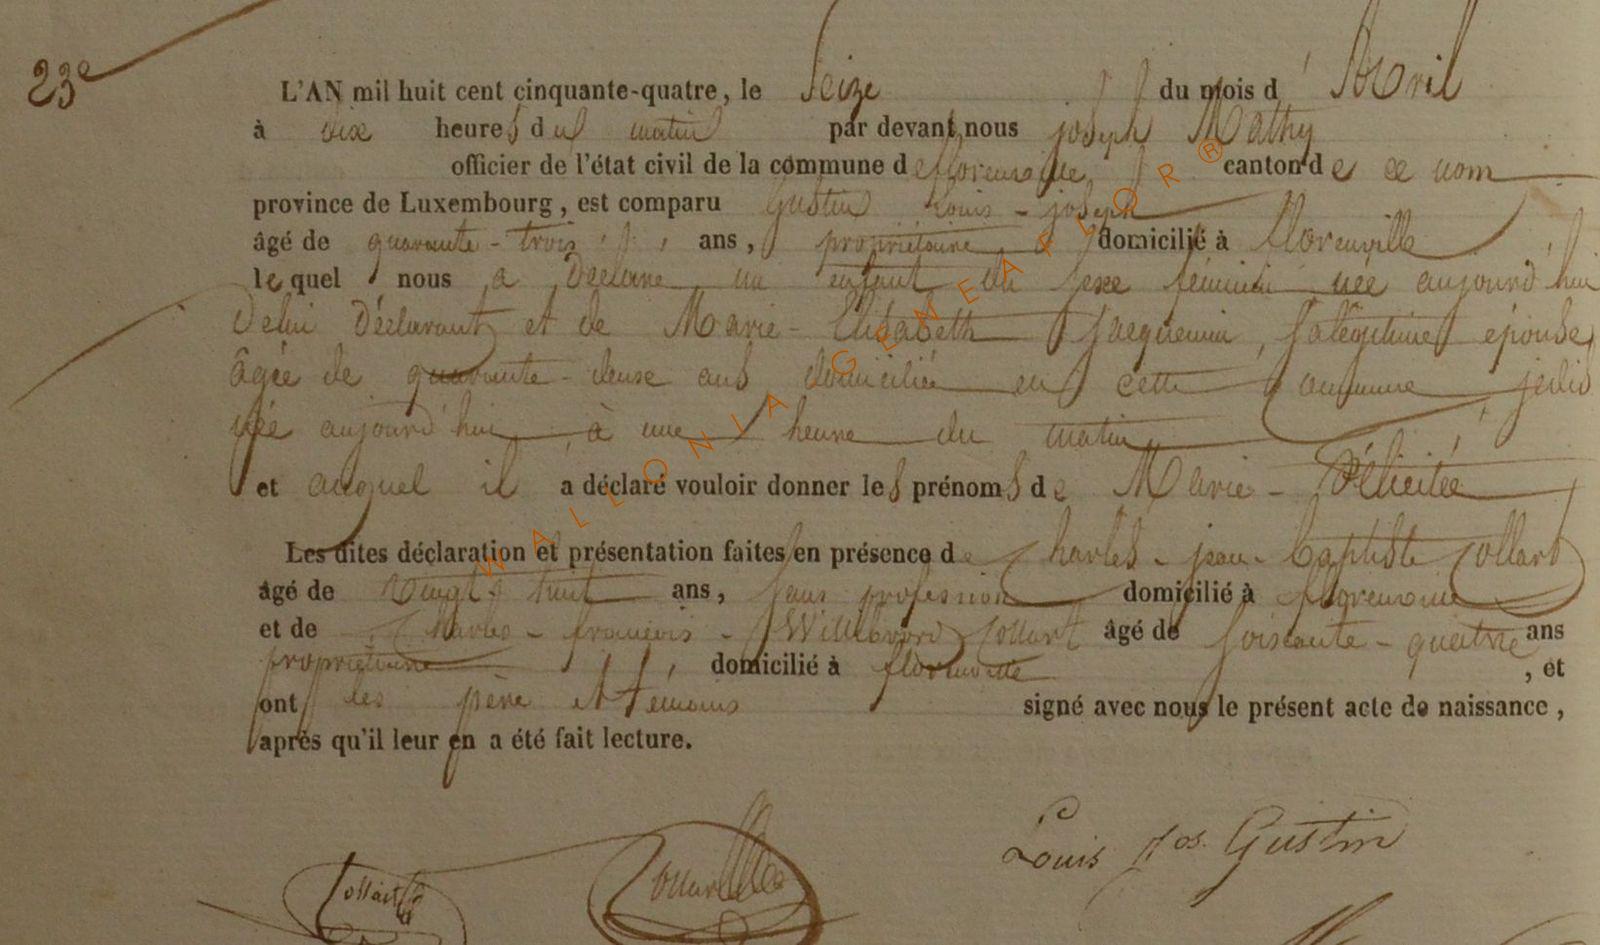 23e
L'AN mil huit cent cinquante-quatre, le Seize du mois d'Avril
à dix heures du matin par devant nous joseph Mathy
officier de l'état civil de la commune de florenville canton de ce nom
province de Luxembourg, est comparu Gustin Louis-joseph
âgé de quarante-trois ans, propriétaire domicilié à florenville
lequel nous a Déclaré un enfant du sexe féminin née aujourd'hui
Delui Déclarant et de Marie-Elisabeth Jacquemin, Salégitime épouse
âgée de quarante-deuse ans domiciliée en cette Commune
née aujourd'hui à une heure du matin
et auquel il a déclaré vouloir donner les prénoms de Marie-Félicitée
Les dites déclaration et présentation faites en présence de Charles-jean-baptiste Collart
âgé de vingt-huit ans, sans profession domicilié à florenville
et de Charles-françois-Willibrord Collart âgé de soixante-quatre ans
propriétaire domicilié à florenville, et
ont les père et témoins signé avec nous le présent acte de naissance,
après qu'il leur en a été fait lecture.
Louis Jos. Gustin
Collart
WALLONIA GENEAFLOR ®